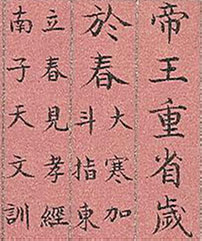 帝王重省歲
於春大寒加
斗指東
立春見孝經
南子天文訓